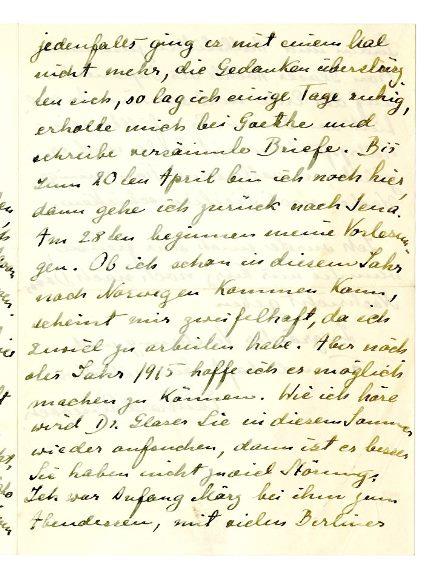 jedenfalls ging es mit einem Mal
nicht mehr, die Gedanken überstürz
ten sich, so lag ich einige Tage ruhig,
erholte mich bei Goethe und
schreibe versäumte Briefe. Bis
zum 20ten April bin ich noch hier,
dann gehe ich zurück nach Jena.
Am 28ten beginnen meine Vorlesun
gen. Ob ich schon in diesem Jahr
nach Norwegen kommen kann,
scheint mir zweifelhaft, da ich
zuviel zu arbeiten habe. Aber noch
das Jahr 1915 hoffe ich es möglich
machen zu können. Wie ich höre
wird Dr. Glaser Sie in diesem Sommer
wieder aufsuchen, dann ist es besser
Sie haben nicht zuviel Störung.
Ich war Anfang März bei ihm zum
Abendessen, mit vielen Berliner